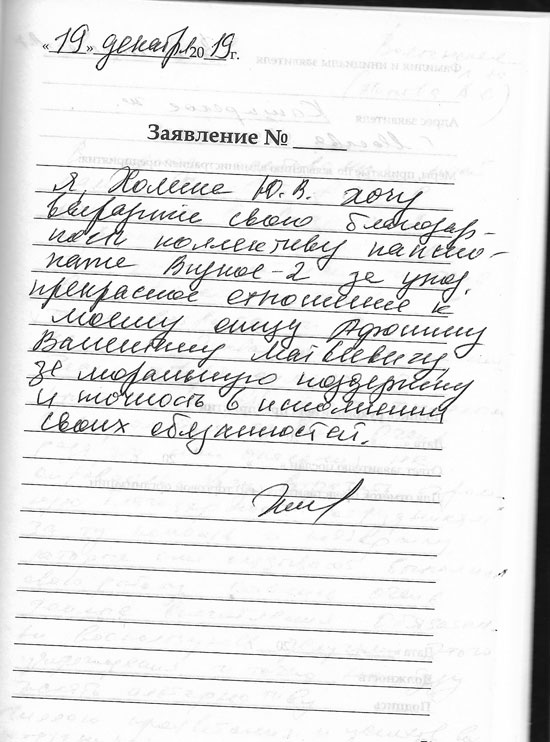 «19» декабря 2019 г.
Заявление №
Я, Холине Ю.В. хочу
выразить свою благодар-
ность коллективу пансио-
ната Видное-2 за уход,
прекрасное отношение к
моему отцу Афонину
Валентину Матвеевичу,
за моральную поддержку
и точность в исполнении
своих обязанностей.